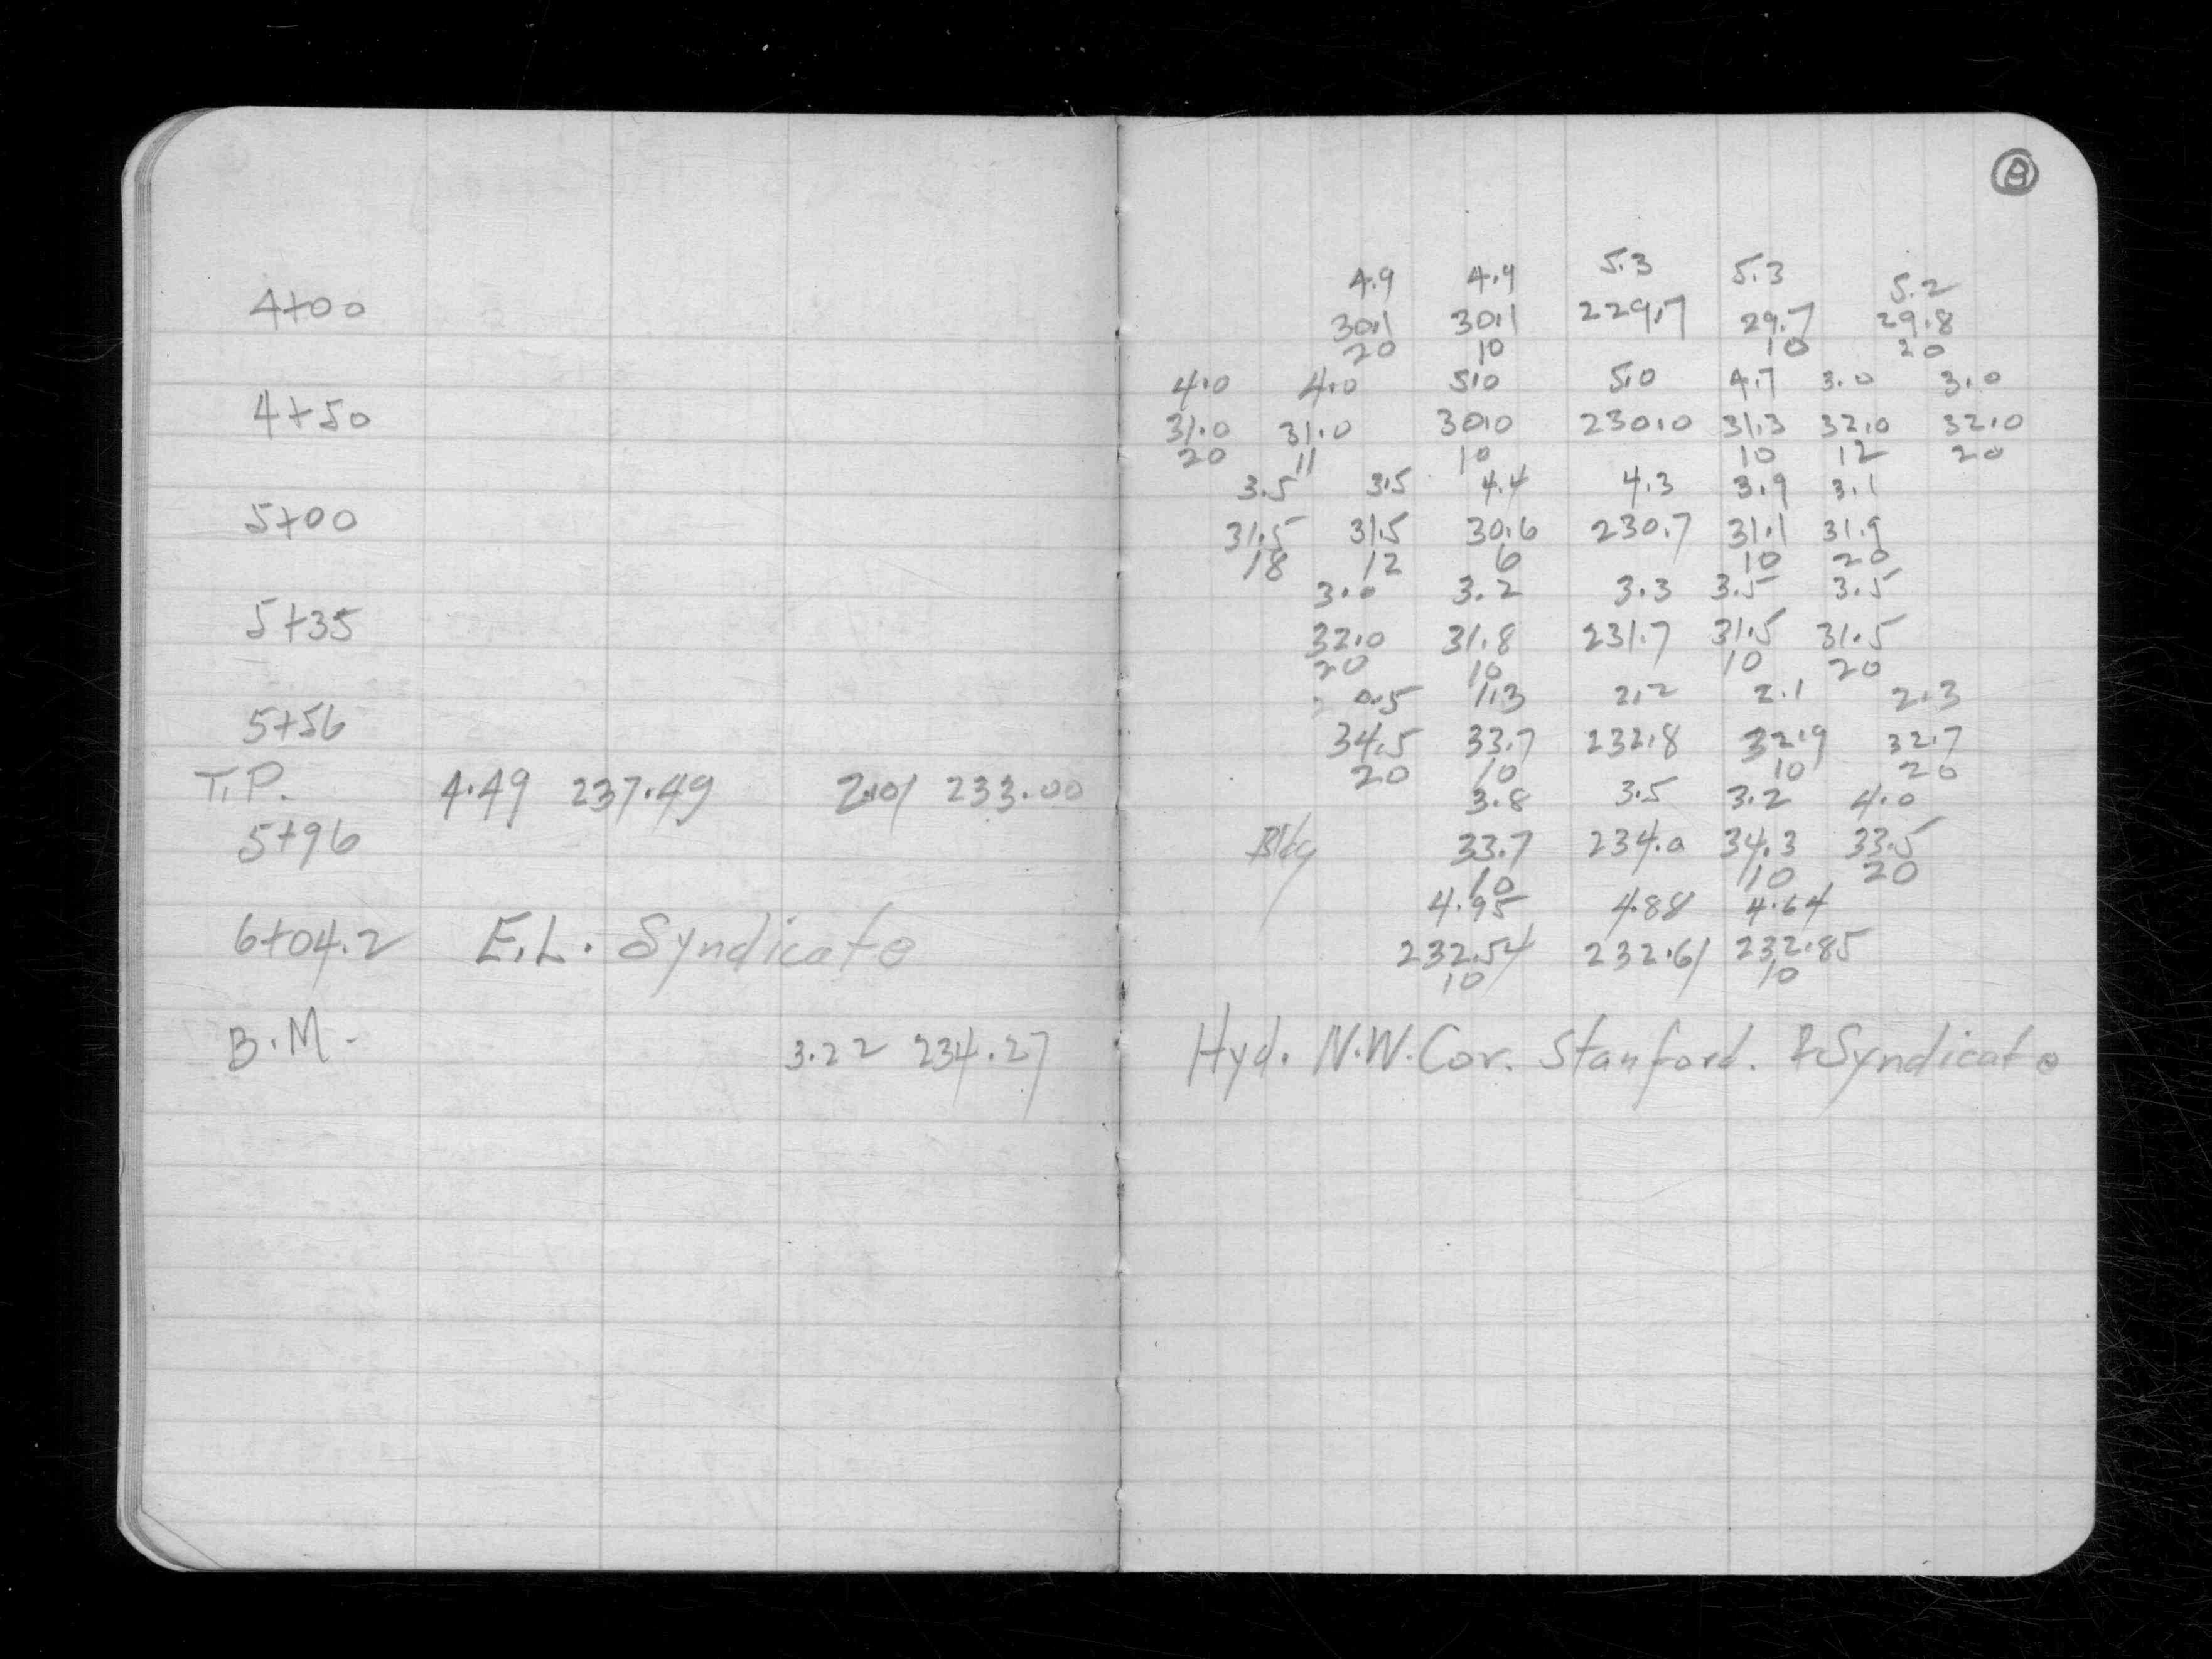 B
4.9 4.9 5.3 5.3 5.2
4+00 30.1 30.1 229.7 29.7 29.8
20 10 10 20
4.0 4.0 5.0 5.0 4.7 3.0 3.0
4+50 31.0 31.0 30.0 230.0 31.3 32.0 32.0
20 11 10 10 12 20
3.5 3.5 4.4 4.3 3.9 3.1
5+00 31.5 31.5 30.6 230.7 31.1 31.9
18 12 6 10 20
3.0 3.2 3.3 3.5 3.5
5+35 32.0 31.8 231.7 31.5 31.5
20 10 10 20
0.5 1.3 2.2 2.1 2.3
5+56 34.5 33.7 232.8 32.9 32.7
20 10 10 20
T.P. 4.49 237.49 2.01 233.00
3.8 3.5 3.2 4.0
5+96 Bldg 33.7 234.0 34.3 33.5
10 10 20
4.95 4.88 4.64
6+04.2 E.L. Syndicate 232.54 232.61 232.85
10 10
B.M. 3.22 234.27 Hyd. N.W. Cor. Stanford. & Syndicate